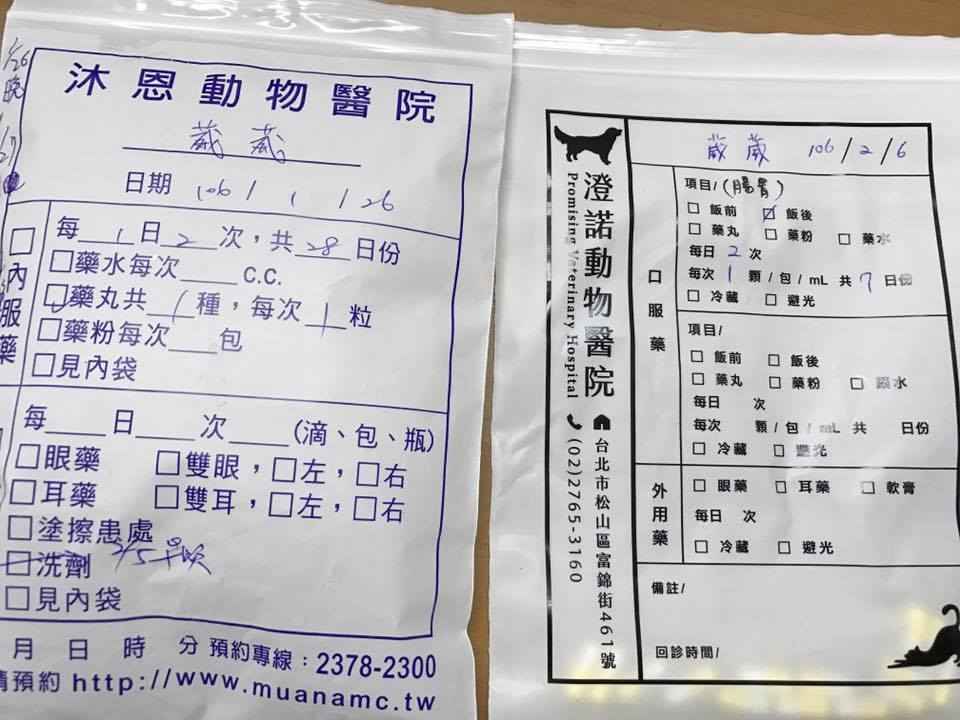 1/26
晚
沐恩動物醫院
葳葳
日期 106 / 1 / 26
□內服藥
每 1 日 2 次，共 28 日份
□藥水每次 ___ C.C.
☑藥丸共 1 種，每次 1 粒
□藥粉每次 ___ 包
□見內袋
每 ___ 日 ___ 次 ___ (滴、包、瓶)
□眼藥 □雙眼，□左，□右
□耳藥 □雙耳，□左，□右
□塗擦患處
□洗劑 2/5早
□見內袋
月 日 時 分 預約專線：2378-2300
預約 http://www.muanamc.tw
澄諾動物醫院
Promising Veterinary Hospital
台北市松山區富錦街461號
(02)2765-3160
葳葳 106/2/6
口服藥
項目/(腸胃)
□ 飯前 ☑ 飯後
□ 藥丸 □ 藥粉 □ 藥水
每日 2 次
每次 1 顆/包/mL 共 7 日份
□ 冷藏 □ 避光
項目/
□ 飯前 □ 飯後
□ 藥丸 □ 藥粉 □ 藥水
每日 次
每次 顆/包/mL 共 日份
□ 冷藏 □ 避光
外用藥
□ 眼藥 □ 耳藥 □ 軟膏
每日 次
□ 冷藏 □ 避光
備註/
回診時間/